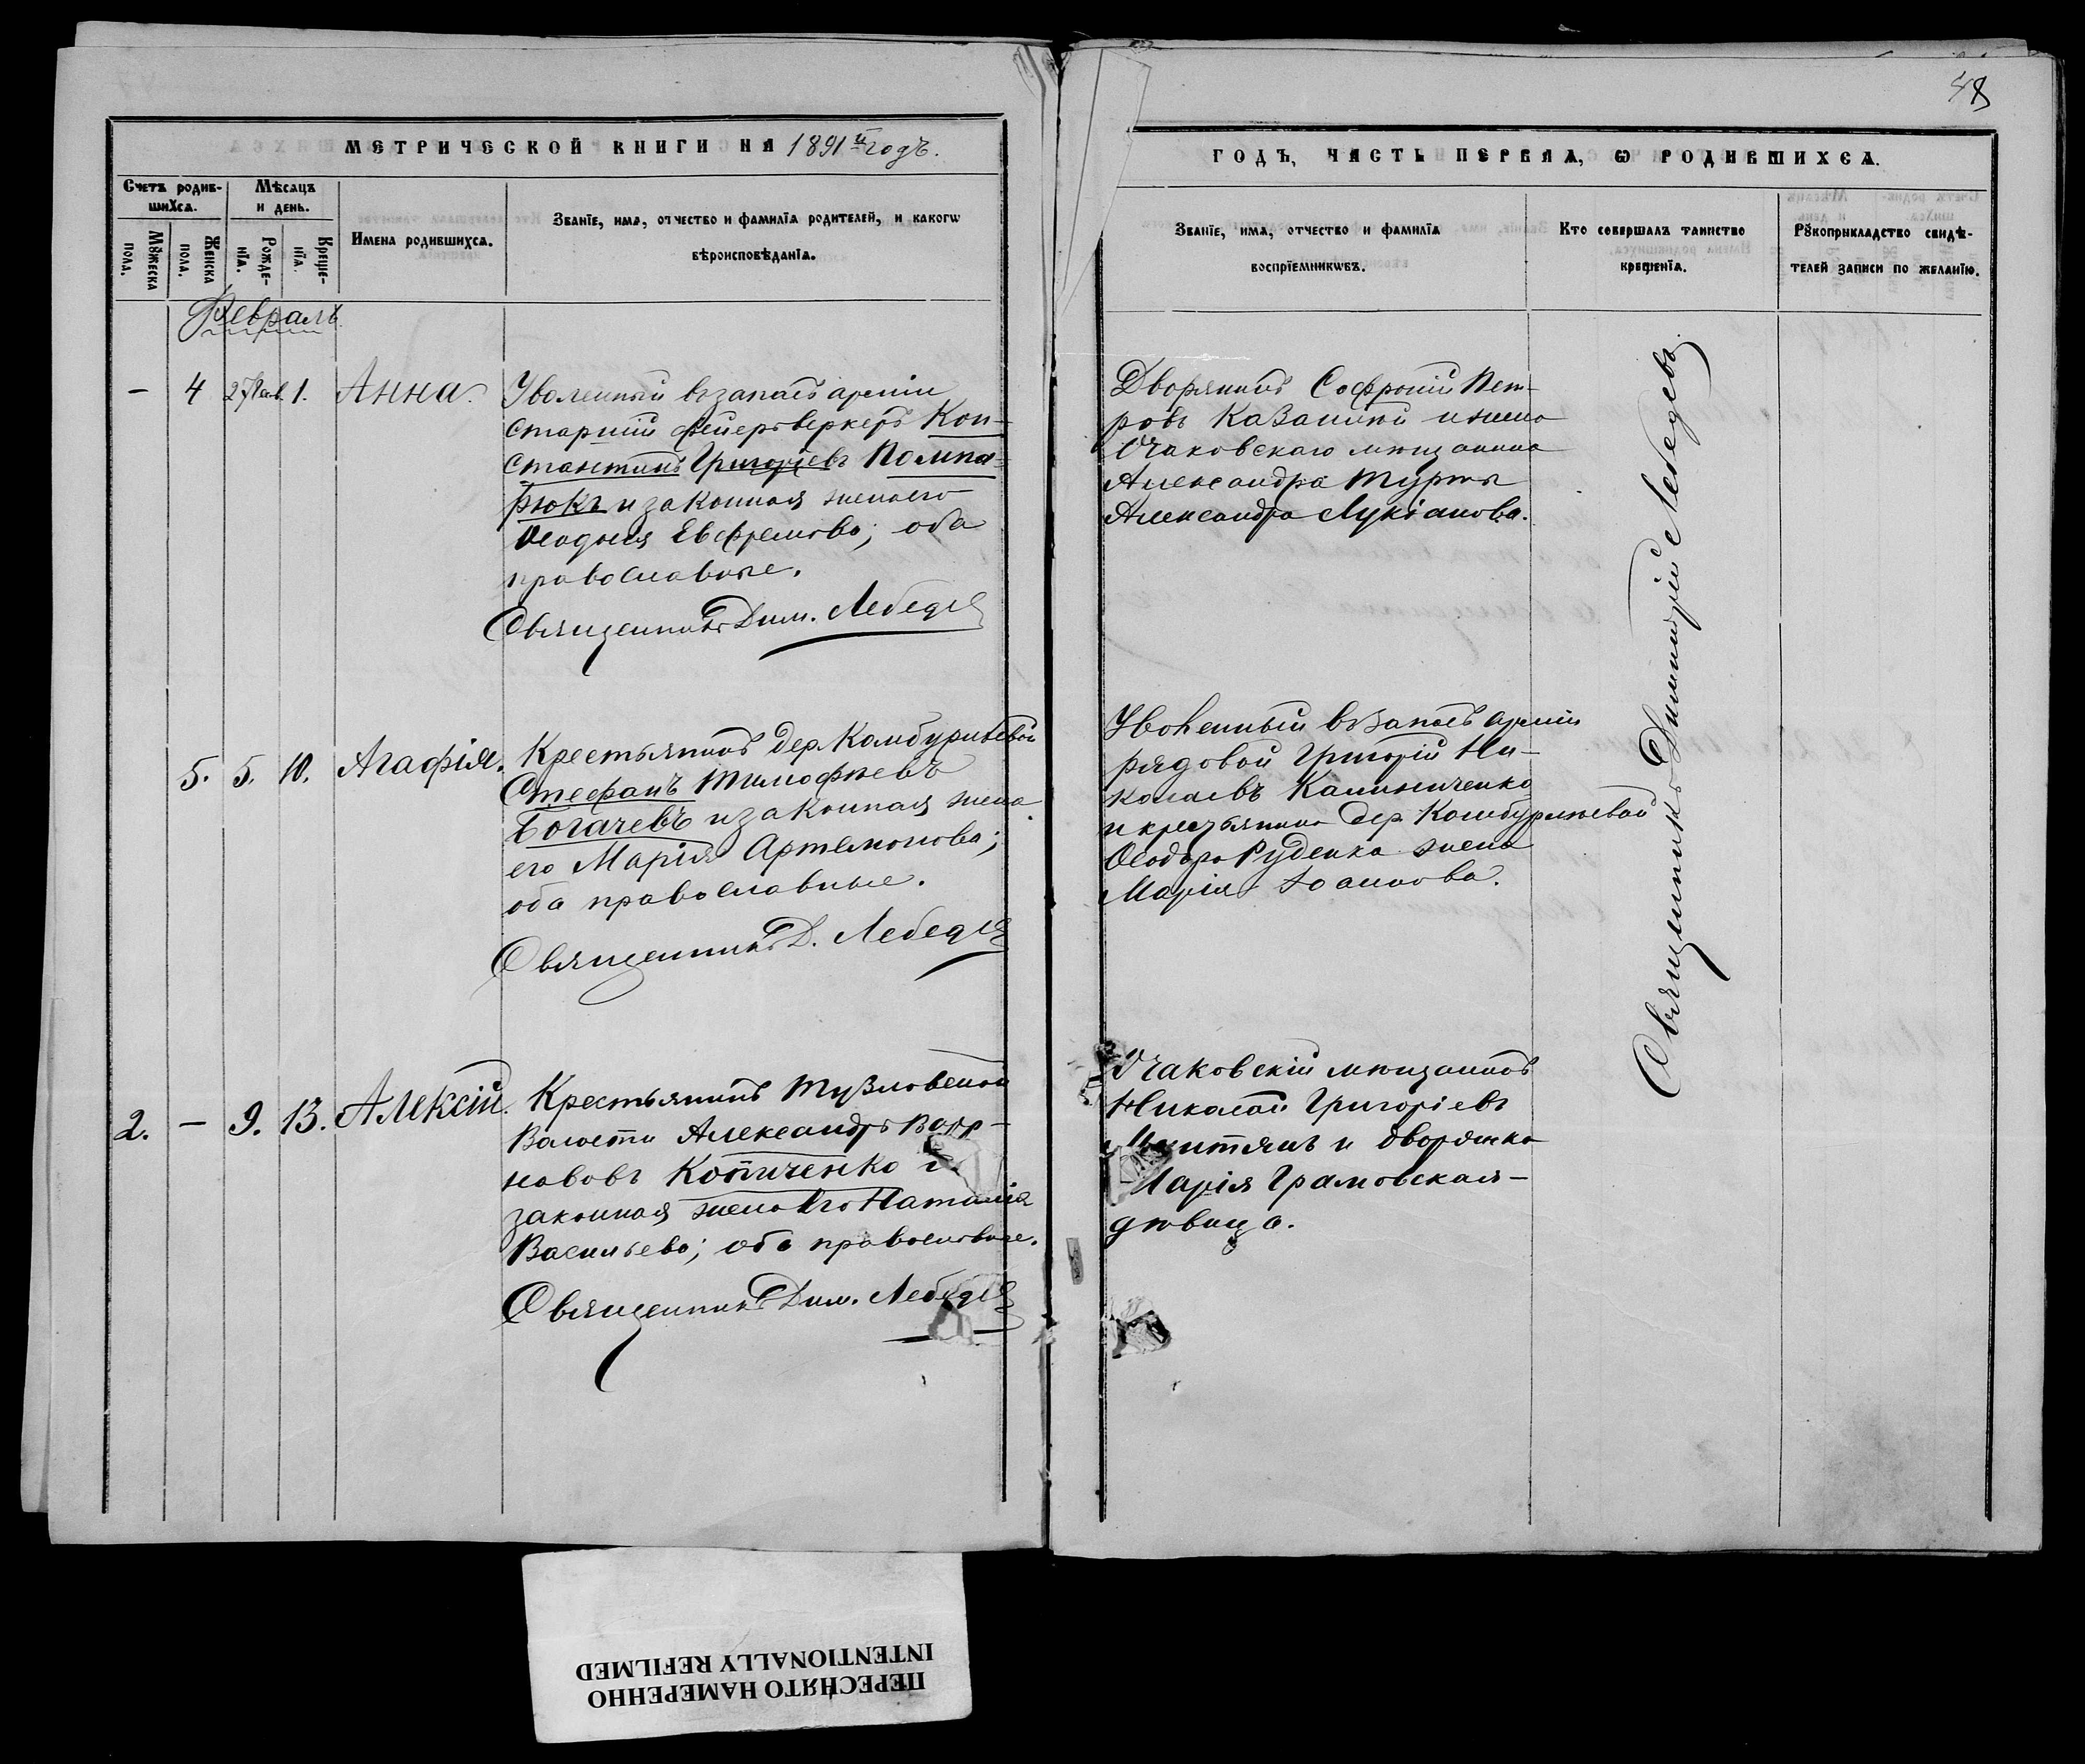 48
МЕТРИЧЕСКОЙ КНИГИ НА 1891 й годъ.
Счетъ родив-
шихсѧ.
Мѣсѧцъ
и день.
Мꙋжеска
пола.
Женска
пола.
Рожде-
нїѧ.
Креще-
нїѧ.
Имена родившихсѧ.
Званїе, имѧ, отчество и фамилїѧ родителей, и какогѡ
вѣроисповѣданїѧ.
Февраль
— 4 27 Янв. 1. Анна.
Уволенный въ запасъ арміи
старшій фейерверкеръ Кон-
стантинъ Григоріевъ Помпа-
рюкъ и законная жена его
Ѳеодосія Евфремова; оба
православные.
Священникъ Дим. Лебедев
5. 5. 10. Агафія.
Крестьянинъ дер. Камбурлѣевой
Стефанъ Тимофѣевъ
Богачевъ и законная жена
его Марія Артемонова;
оба православные.
Священникъ Д. Лебедев
2. — 9. 13. Алексій.
Крестьянинъ Тузловской
Волости Александръ
Копиченко и
законная жена его Наталія
Васильева; оба православные.
Священникъ Дим. Лебедев
ГОДЪ, ЧАСТЬ ПЕРВАѦ, Ѡ РОДИВШИХСѦ.
Званїе, имѧ, отчество и фамилїѧ
воспрїемникѡвъ.
Кто совершалъ таинство
крещенїѧ.
Рꙋкоприкладство свидѣ-
телей записи по желанїю.
Дворянинъ Софроній Пет-
ровъ Казанскій и жена
Очаковскаго мѣщанина
Александра Турты
Александра Лукіанова.
Уволенный въ запасъ арміи
рядовой Григорій Ни-
колаевъ Калиниченко
и крестьянина дер. Камбурлѣевой
Ѳеодора Руденка жена
Марія Іоаннова.
Очаковскій мѣщанинъ
Николай Григоріевъ
и дворянка
Марія Грамовская—
дѣвица.
Священникъ Димитрій Лебедевъ.
ПЕРЕСНЯТО НАМЕРЕННО
INTENTIONALLY REFILMED